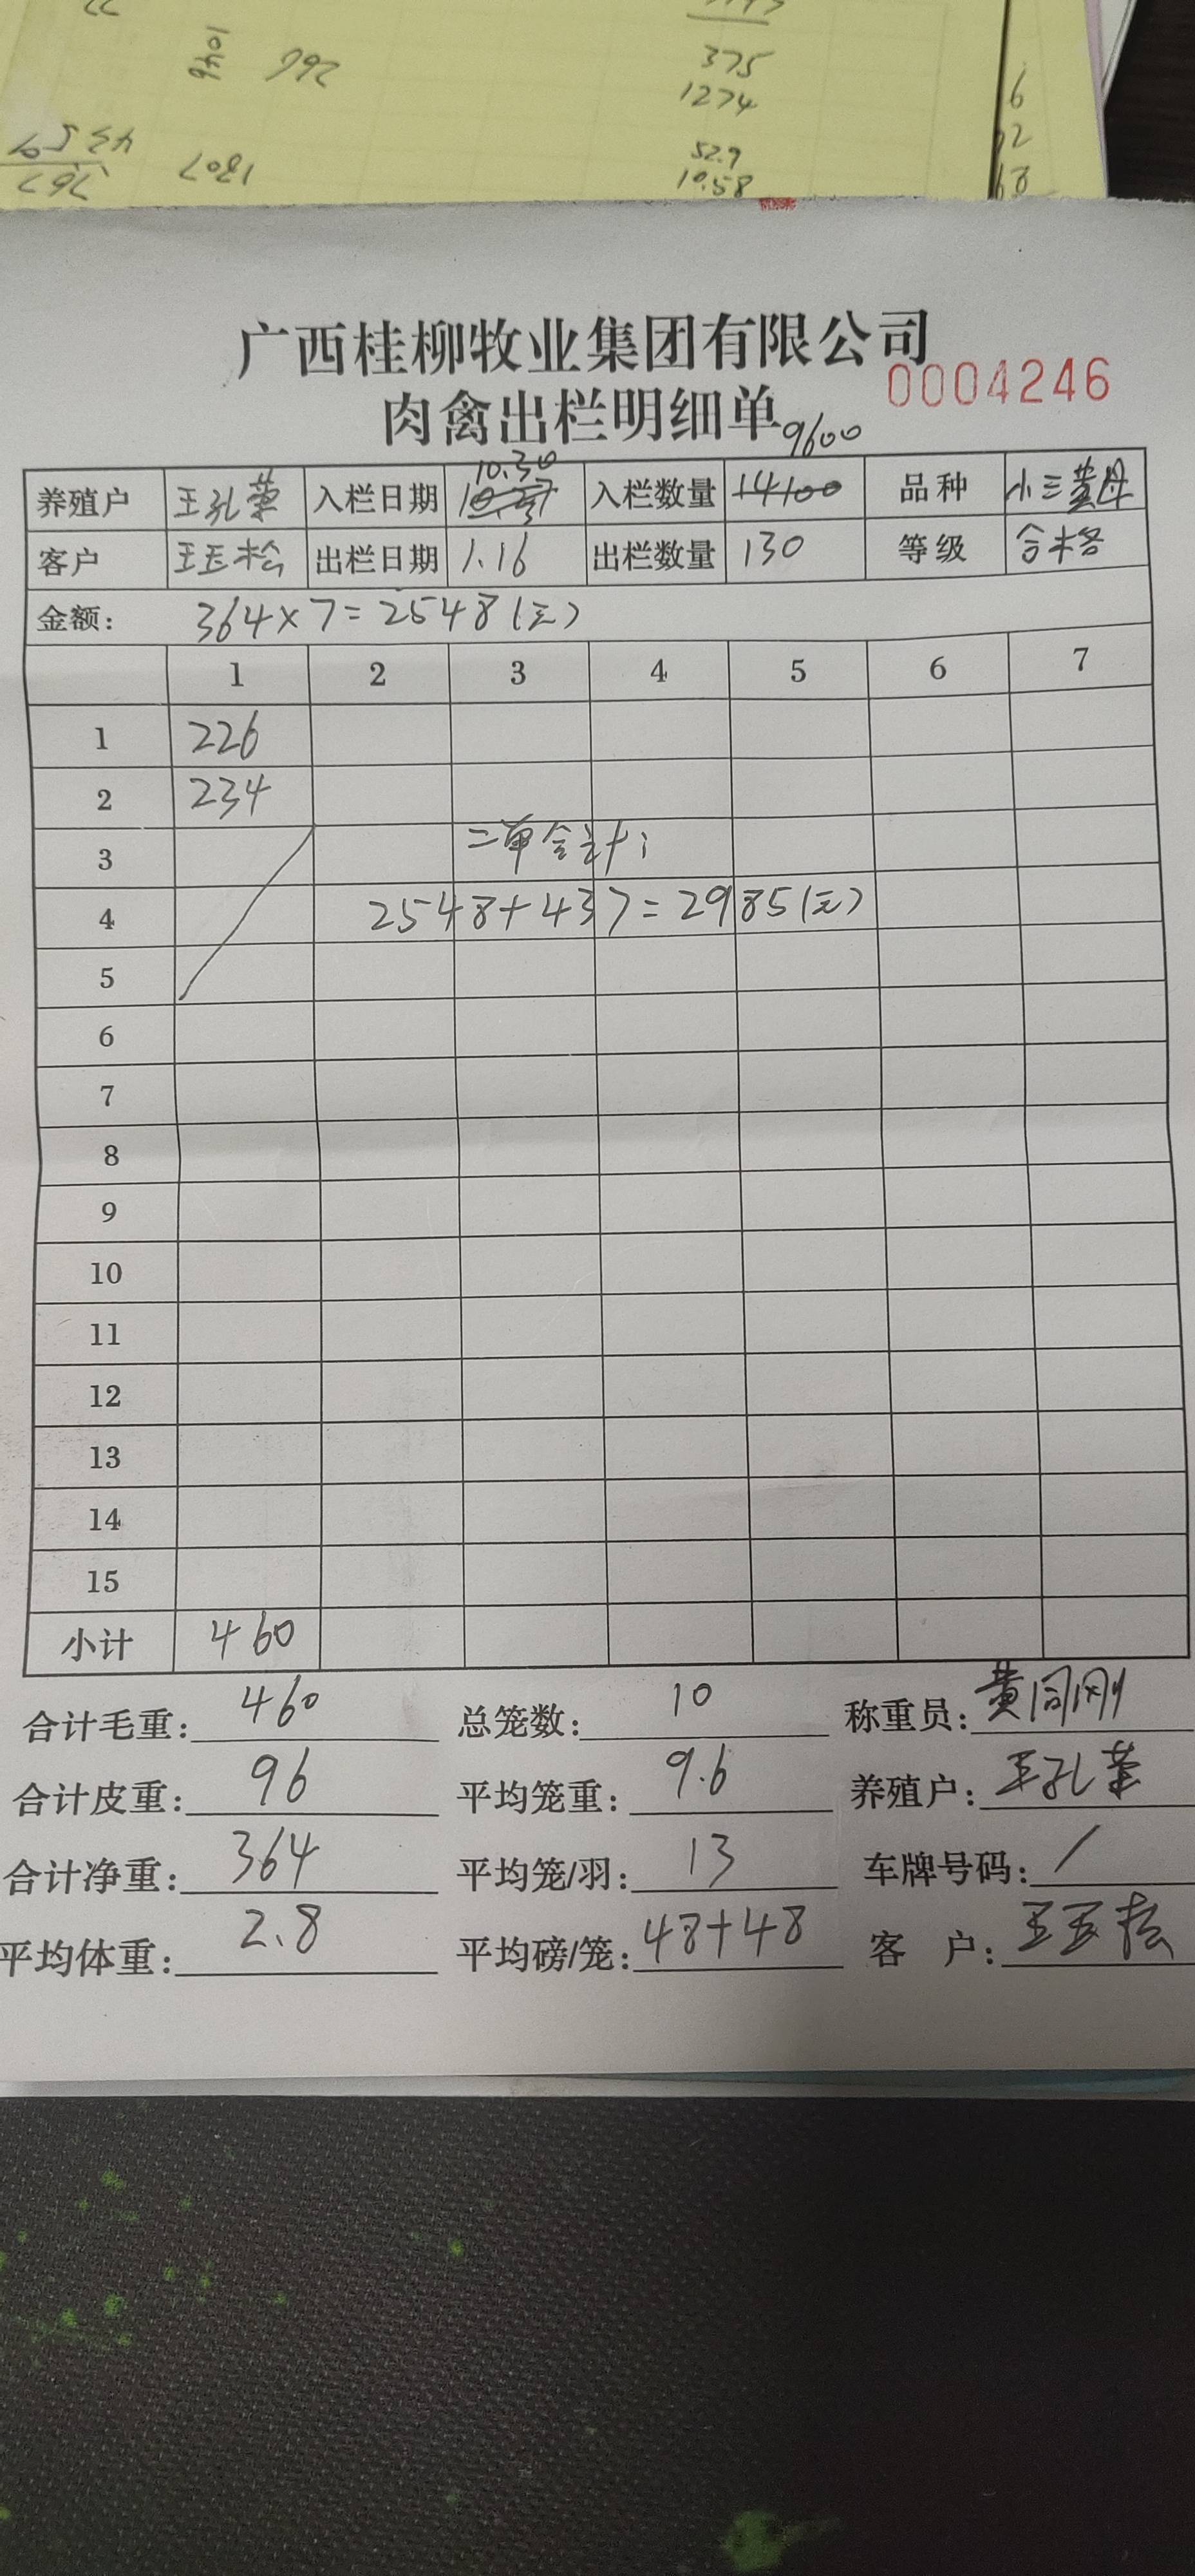 375
1274
52.9
10.58
266
1046
1807
广西桂柳牧业集团有限公司
0004246
肉禽出栏明细单
9600
10.30
养殖户 王孔荣 入栏日期 入栏数量 14100 品种 小三黄母
客户 王玉松 出栏日期 1.16 出栏数量 130 等级 合格
金额: 364×7=2548(元)
1 2 3 4 5 6 7
1 226
2 234
3 二单合计:
4 2548+437=2985(元)
5
6
7
8
9
10
11
12
13
14
15
小计 460
合计毛重: 460 总笼数: 10 称重员: 黄同刚
合计皮重: 96 平均笼重: 9.6 养殖户: 王孔荣
合计净重: 364 平均笼/羽: 13 车牌号码: /
平均体重: 2.8 平均磅/笼: 48+48 客 户: 王玉松